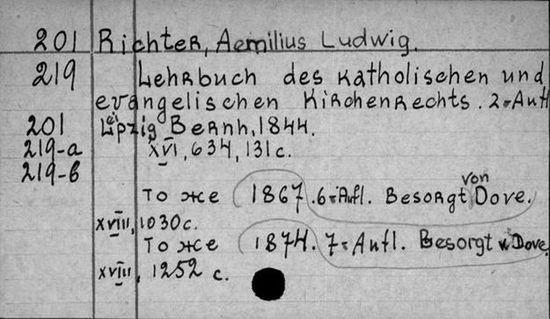 201 Richter, Aemilius Ludwig.
219 Lehrbuch des Katholischen und
evangelischen Kirchenrechts. 2=Aufl
201 Leipzig Bernh, 1844.
219-а XVI, 634, 131 с.
219-б
То же 1867. 6=Aufl. Besorgt von Dove.
XVIII, 1030 с.
То же 1874. 7=Aufl. Besorgt v. Dove.
XVIII, 1252 с.